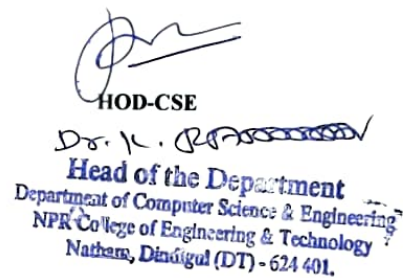 HOD-CSE
Dr. K.
Head of the Department
Department of Computer Science & Engineering
NPR College of Engineering & Technology
Natham, Dindigul (DT) - 624 401.